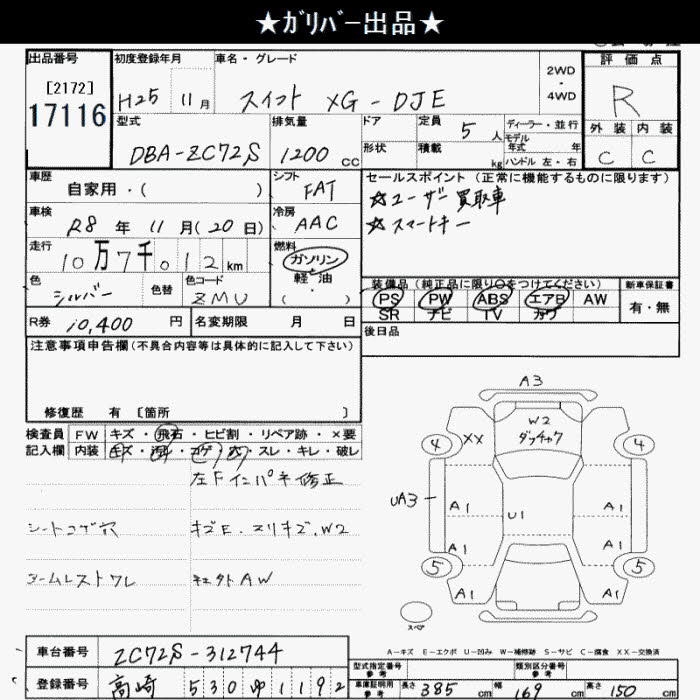 ★ｶﾞﾘﾊﾞｰ出品★
出品番号
[2172]
17116
初度登録年月
H25 11月
車名・グレード
スイフト XG-DJE
2WD
・
4WD
評価点
R
外装 内装
C C
型式
DBA-ZC72S
排気量
1200 cc
ドア
形状
定員 5人
積載 kg
ディーラー・並行
モデル
年式 年
ハンドル 左・右
車歴
自家用・( )
シフト
FAT
車検
R8年 11月(20日)
冷房
AAC
走行
10万7千012km
燃料
ガソリン
軽・油
( )
色
シルバー
色替
色コード
ZMU
セールスポイント (正常に機能するものに限ります)
☆ユーザー買取車
☆スマートキー
装備品(純正品に限り○をつけてください)
PS PW ABS エアB AW
SR ナビ TV カワ
新車保証書
有・無
R券 10,400円
名変期限 月 日
後日品
注意事項申告欄(不具合内容等は具体的に記入して下さい)
修復歴 有 [箇所 ]
検査員
記入欄
FW キズ・飛石・ヒビ割・リペア跡・×要
内装 キズ・汚レ・コゲ・穴・スレ・キレ・破レ
左Fインパネ修正
シートコゲ穴
キズE.スリキズ.W2
アームレストワレ
社外AW
A3
W2
ダッチャク
XX
4
4
UA3
A1
A1
U1
A1
A1
5
5
A1
A1
スペア
A-キズ E-エクボ U-凹み W-補修跡 S-サビ C-腐食 XX-交換済
車台番号
ZC72S-312744
登録番号
高崎 530 ゆ 1192
型式指定番号
参考
類別区分番号
参考
車庫証明用
参考
長さ 385cm 幅 169cm 高さ 150cm